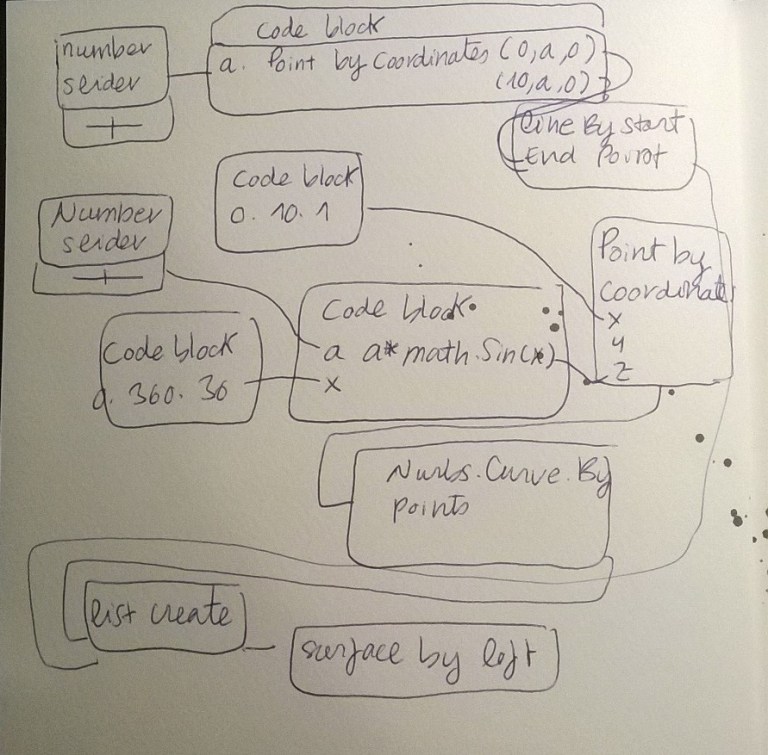 Code block
number
seider
a. Point by Coordinates (0,a,0)
(10,a,0)
Line By start
End Point
Code block
0. 10. 1
Number
seider
Point by
Coordinate
x
y
z
Code block
a a* math.Sin(x)
x
Code block
0. 360. 36
Nurbs.Curve.By
points
list create
surface by loft